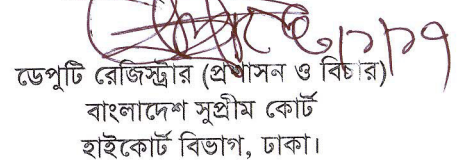 ডেপুটি রেজিস্ট্রার (প্রশাসন ও বিচার)
বাংলাদেশ সুপ্রীম কোর্ট
হাইকোর্ট বিভাগ, ঢাকা।